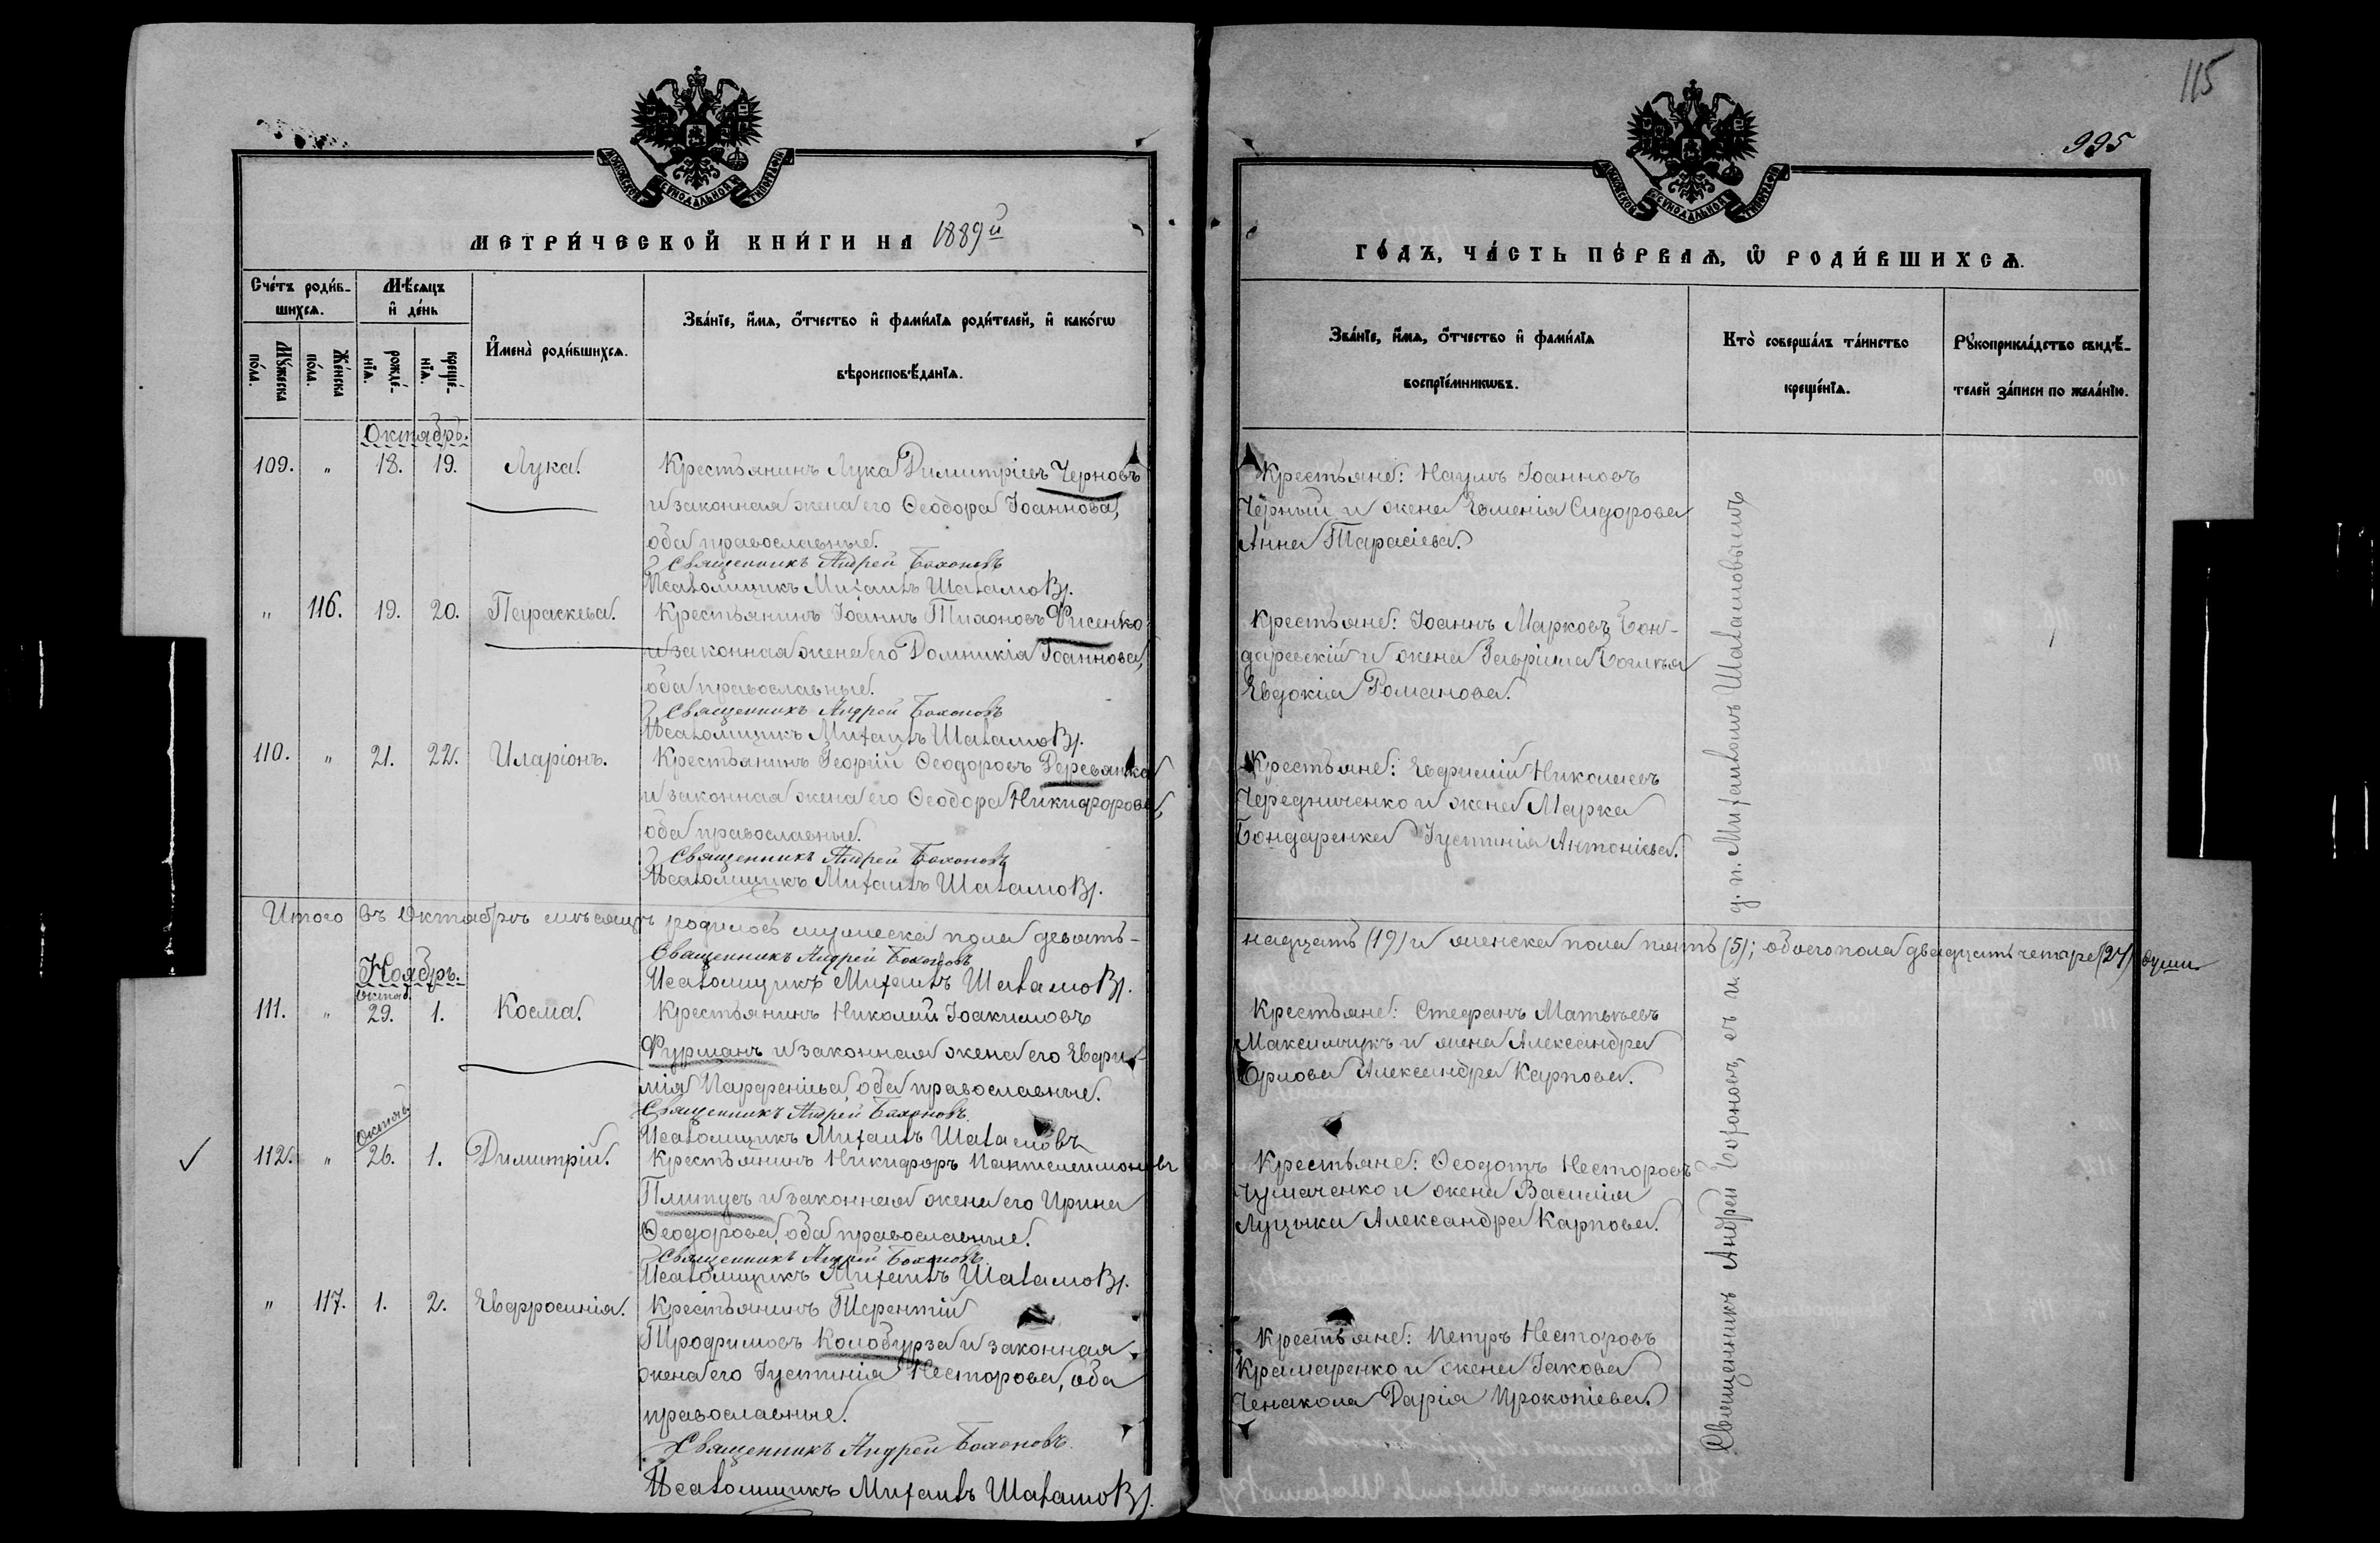 115
995
МЕТРИ́ЧЕСКОЙ КНИ́ГИ НА 1889й
ГО́ДЪ, ЧА́СТЬ ПЕ́РВАѦ, Ѽ РОДИ́ВШИХСѦ.
Сче́тъ роди́в-
шихсѧ.
Мѣ́сѧцъ
и҆ де́нь
Мꙋ́жеска по́ла.
Же́нска по́ла.
рожде́-нїѧ.
креще́-нїѧ.
И҆мена̀ роди́вшихсѧ.
Зва́нїе, и҆́мѧ, ѻ҆́тчество и҆ фами́лїѧ роди́телей, и҆ како́гѡ
вѣроисповѣ́данїѧ.
Зва́нїе, и҆́мѧ, ѻ҆́тчество и҆ фами́лїѧ
воспрїе́мникѡвъ.
Кто̀ соверша́лъ та́инство
креще́нїѧ.
Рꙋкоприкла́дство свидѣ́-
телей за́писи по жела́нїю.
Октябрь.
109. " 18. 19. Лука. Крестьянинъ Лука Димитріевъ Черновъ
и законная жена его Ѳеодора Іоаннова,
оба православные.
Священникъ Андрей Бохоновъ
Псаломщикъ Михаилъ Шаламовъ.
Крестьяне: Наумъ Іоанновъ
Чёрный и жена Евменія Сидорова
Анна Тарасіева.
" 116. 19. 20. Параскева. Крестьянинъ Іоаннъ Тихоновъ Фисенко
и законная жена его Домникія Іоаннова,
оба православные.
Священникъ Андрей Бохоновъ
Псаломщикъ Михаилъ Шаламовъ.
Крестьяне: Іоаннъ Марковъ Бон-
даревскій и жена Гавріила
Евдокія Романова.
110. " 21. 22. Иларіонъ. Крестьянинъ Георгій Ѳеодоровъ Деревянко
и законная жена его Ѳеодора Никифорова,
оба православные.
Священникъ Андрей Бохоновъ
Псаломщикъ Михаилъ Шаламовъ.
Крестьяне: Евфимій Николаевъ
Чередниченко и жена Марка
Бондаренка Іустинія Антоніева.
Итого въ Октябрѣ мѣсяцѣ родилось мужеска пола девять-
надцать (19) и женска пола пять (5); обоего пола двадцать четыре (24) души.
Священникъ Андрей Бохоновъ
Псаломщикъ Михаилъ Шаламовъ.
Ноябрь.
Октяб.
111. " 29. 1. Косма. Крестьянинъ Николай Іоакимовъ
Фурманъ и законная жена его Евфи-
мія Парфеніева, оба православные.
Священникъ Андрей Бохоновъ
Псаломщикъ Михаилъ Шаламовъ
Крестьяне: Стефанъ Матвѣевъ
Максимчукъ и жена Александра
Орлова Александра Карпова.
Октяб.
112. " 26. 1. Димитрій. Крестьянинъ Никифоръ Пантелеимоновъ
Плитусъ и законная жена его Ирина
Ѳеодорова, оба православные.
Священникъ Андрей Бохоновъ
Псаломщикъ Михаилъ Шаламовъ.
Крестьяне: Ѳеодотъ Несторовъ
Чумаченко и жена Василія
Луцыка Александра Карпова.
" 117. 1. 2. Евфросинія. Крестьянинъ Терентій
Трофимовъ Колобурза и законная
жена его Іустинія Несторова, оба
православные.
Священникъ Андрей Бохоновъ.
Псаломщикъ Михаилъ Шаламовъ.
Крестьяне: Петръ Несторовъ
Крамаренко и жена Іакова
Ченакола Дарія Прокопіева.
Священникъ Андрей Бохоновъ, съ и. д. п. Михаиломъ Шаламовымъ